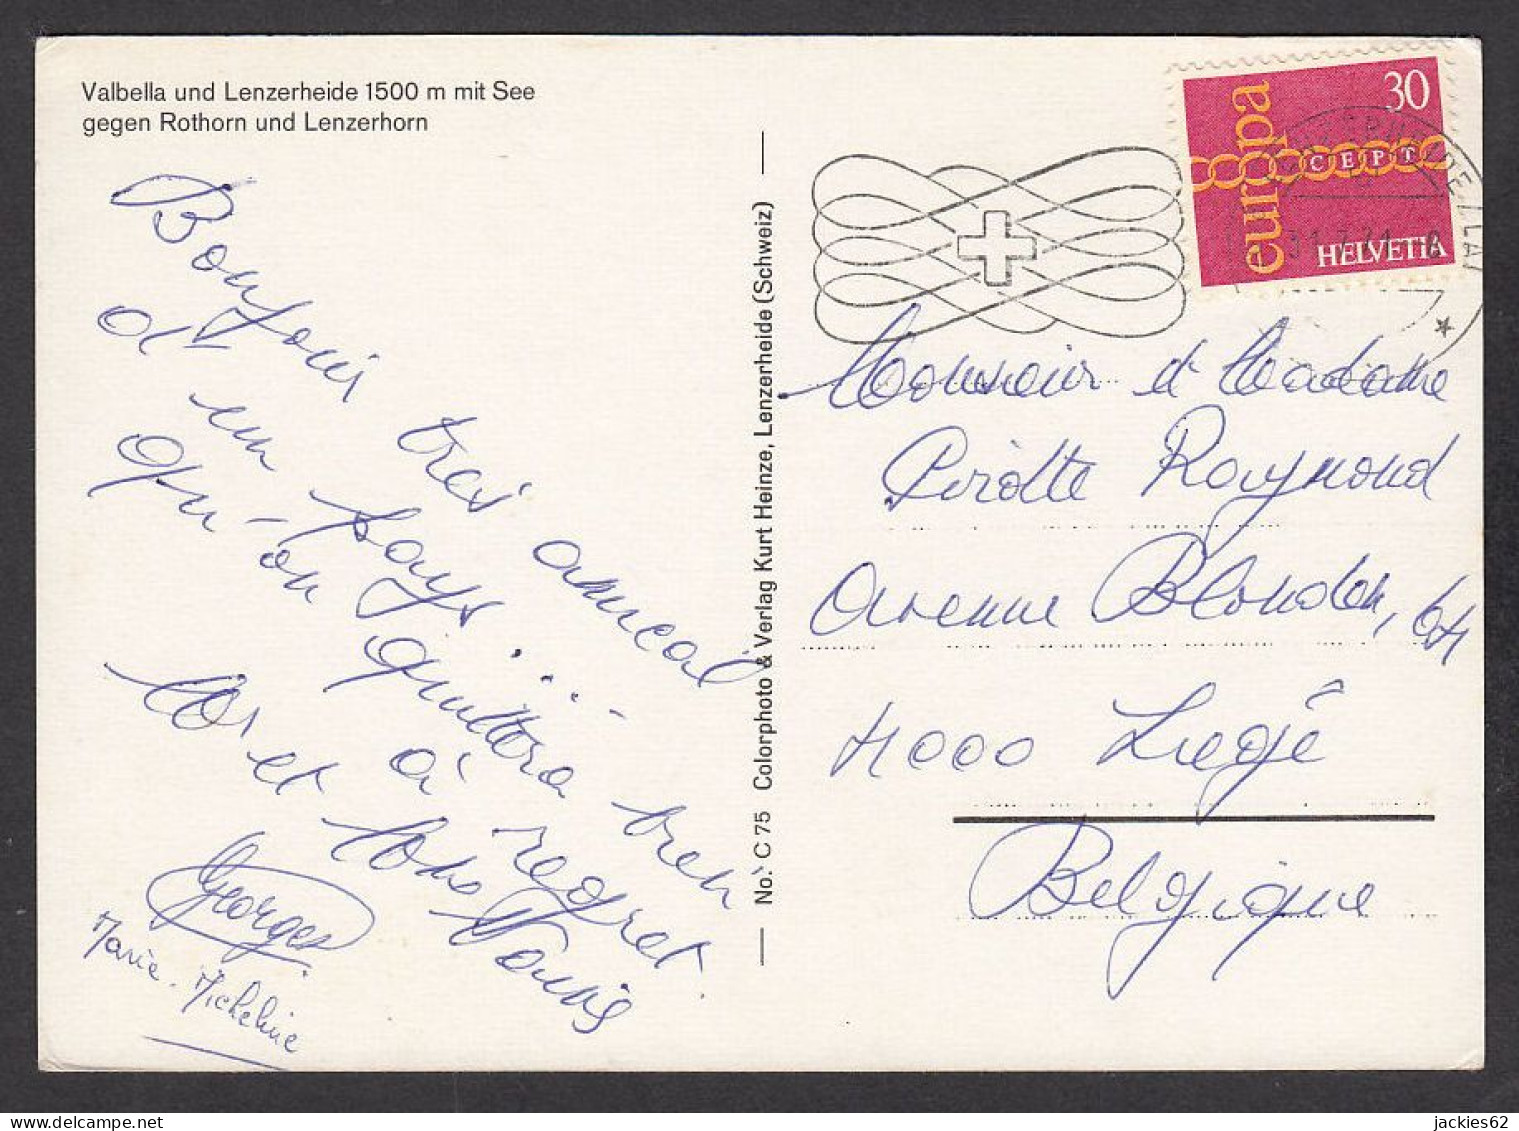 Valbella und Lenzerheide 1500 m mit See
gegen Rothorn und Lenzerhorn
Bonjour très amical
d'un pays . . . .
qu'on quittera très
à regret.
et tous
Georges
Marie. Micheline
No. C 75 Colorphoto & Verlag Kurt Heinze, Lenzerheide (Schweiz)
europa
30
CEPT
HELVETIA
31.7.71
Monsieur et Madame
Pirotte Raymond
Avenue Blonden, 64
4000 Liège
Belgique
jackies62